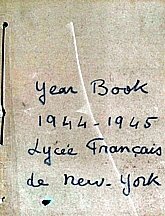 Year Book
1944-1945
Lycée Français
de new-York